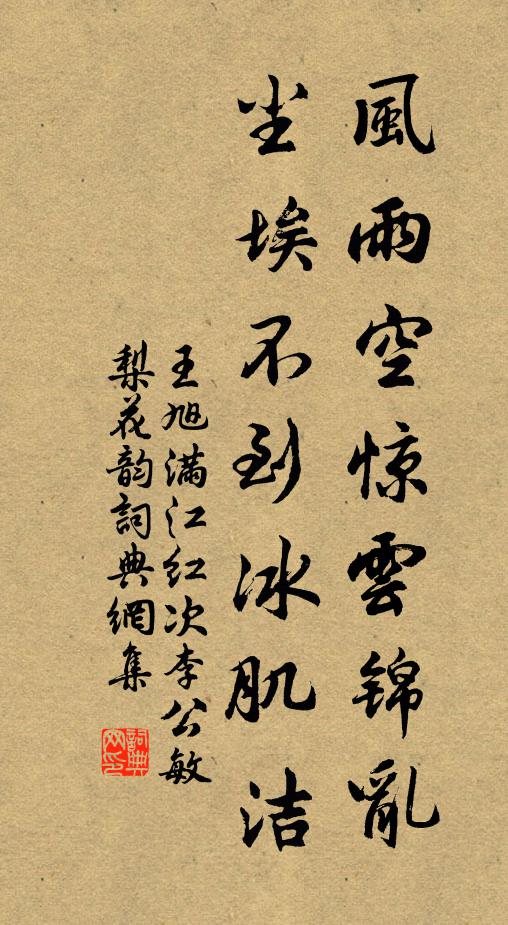 風雨空惊雲錦亂
尘埃不到冰肌洁
王旭满江红次李公敏
梨花韵詞典網集
詞典
网印